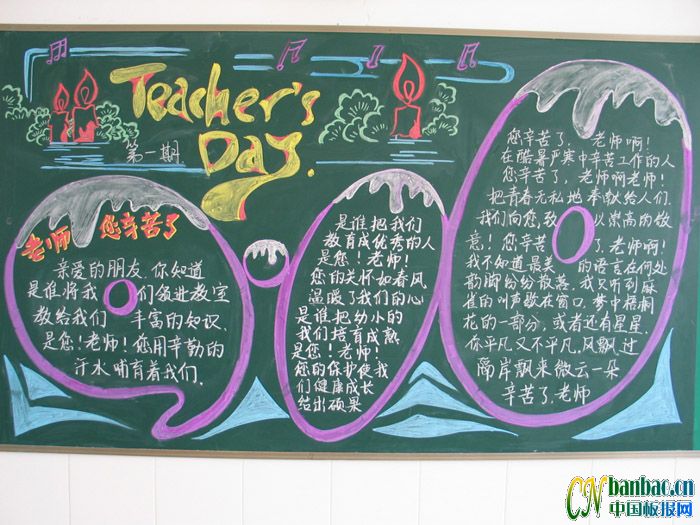 Teacher's
Day.
第一期
老师 您辛苦了
亲爱的朋友.你知道
是谁将我们领进教室
教给我们丰富的知识.
是您!老师!您用辛勤的
汗水哺育着我们.
是谁把我们
教育成优秀的人
是您!老师!
您的关怀如春风
温暖了我们的心
是谁把幼小的
我们培育成熟
是您!老师!
您的保护使我
们健康成长
结出硕果
您辛苦了、老师啊!
在酷暑严寒中辛苦工作的人
您辛苦了,老师啊老师!
把青春无私地奉献给人们.
我们向您,致以崇高的敬
意!您辛苦了、老师啊!
我不知道最美的语言在何处
韵脚纷纷散落。我只听到麻
雀的叫声歌在窗口,梦中梧桐
花的一部分,或者还有星星.
你平凡又不平凡.风飘过
隔岸飘来微云一朵
辛苦了.老师
CN banbao.cn
中国板报网